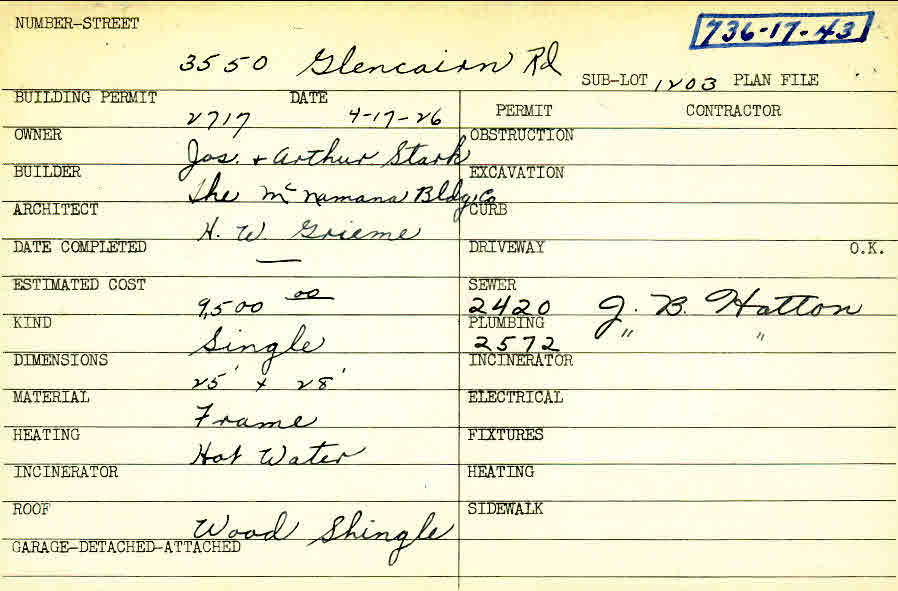 NUMBER-STREET
736-17-43
3550 Glencairn Rd
SUB-LOT 1203 PLAN FILE
BUILDING PERMIT DATE
2717 4-17-26
PERMIT CONTRACTOR
OWNER
Jos. + Arthur Stark
OBSTRUCTION
BUILDER
The Mc Namana Bldg. Co
EXCAVATION
ARCHITECT
H. W. Grieme
CURB
DATE COMPLETED
—
DRIVEWAY O.K.
ESTIMATED COST
9,500 00
SEWER
2420 J. B. Hatton
KIND
Single
PLUMBING
2572 " "
DIMENSIONS
25' x 28'
INCINERATOR
MATERIAL
Frame
ELECTRICAL
HEATING
Hot Water
FIXTURES
INCINERATOR
HEATING
ROOF
Wood Shingle
SIDEWALK
GARAGE-DETACHED-ATTACHED